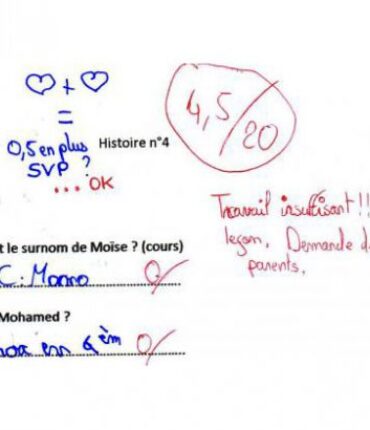 ♡ + ♡
=
0,5 en plus
SVP ?
... OK
Histoire n°4
4,5/20
Travail insuffisant !!
leçon. Demande d
parents.
t le surnom de Moïse ? (cours)
C: Momo 0/
Mohamed ?
en 6èm 0/